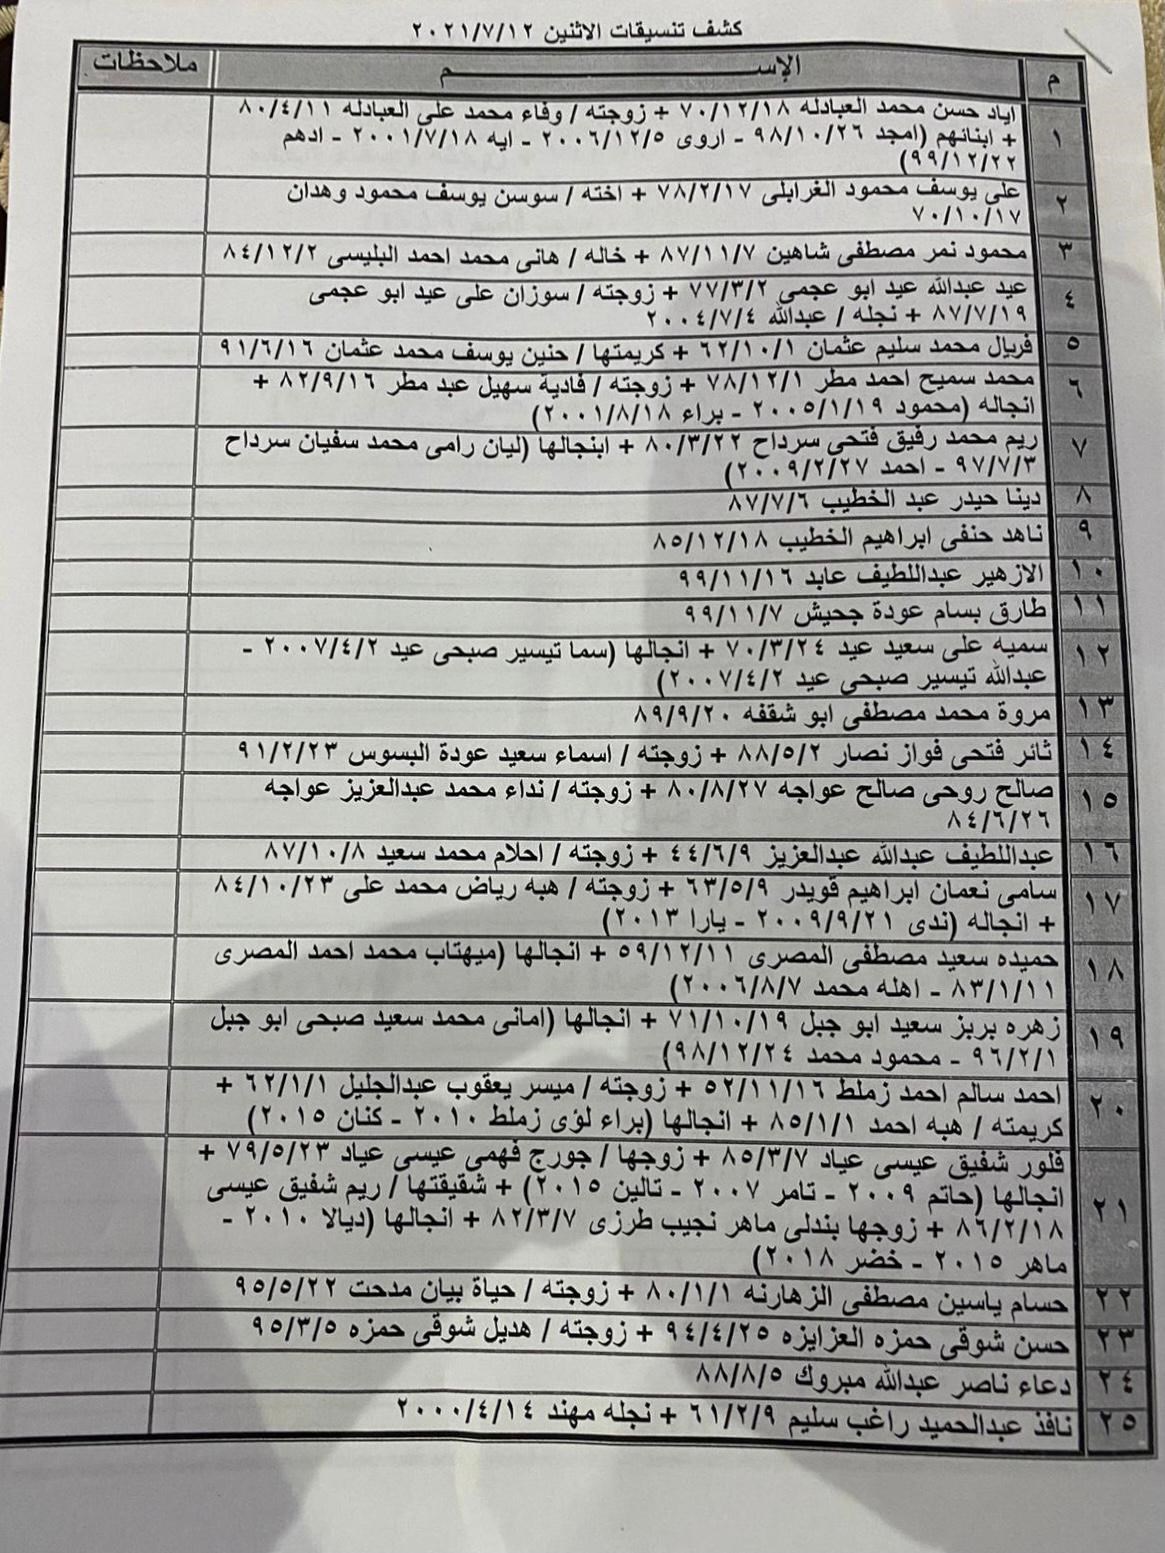 كشف تنسيقات الاثنين ٢٠٢١/٧/١٢
م الإســـــــــم ملاحظات
١ اياد حسن محمد العبادله ٧٠/١٢/١٨ + زوجته / وفاء محمد على العبادله ٨٠/٤/١١
+ ابنائهم (امجد ٩٨/١٠/٢٦ - اروى ٢٠٠٦/١٢/٥ - ايه ٢٠٠١/٧/١٨ - ادهم
٩٩/١٢/٢٢)
٢ على يوسف محمود الغرابلى ٧٨/٢/١٧ + اخته / سوسن يوسف محمود وهدان
٧٠/١٠/١٧
٣ محمود نمر مصطفى شاهين ٨٧/١١/٧ + خاله / هانى محمد احمد البليسى ٨٤/١٢/٢
٤ عيد عبدالله عيد ابو عجمى ٧٧/٣/٢ + زوجته / سوزان على عيد ابو عجمى
٨٧/٧/١٩ + نجله / عبدالله ٢٠٠٤/٧/٤
٥ فريال محمد سليم عثمان ٦٢/١٠/١ + كريمتها / حنين يوسف محمد عثمان ٩١/٦/١٦
٦ محمد سميح احمد مطر ٧٨/١٢/١ + زوجته / فادية سهيل عبد مطر ٨٢/٩/١٦ +
انجاله (محمود ٢٠٠٥/١/١٩ - براء ٢٠٠١/٨/١٨)
٧ ريم محمد رفيق فتحى سرداح ٨٠/٣/٢٢ + ابنجالها (ليان رامى محمد سفيان سرداح
٩٧/٧/٣ - احمد ٢٠٠٩/٢/٢٧)
٨ دينا حيدر عبد الخطيب ٨٧/٧/٦
٩ ناهد حنفى ابراهيم الخطيب ٨٥/١٢/١٨
١٠ الازهير عبداللطيف عابد ٩٩/١١/١٦
١١ طارق بسام عودة جحيش ٩٩/١١/٧
١٢ سميه على سعيد عيد ٧٠/٣/٢٤ + انجالها (سما تيسير صبحى عيد ٢٠٠٧/٤/٢ -
عبدالله تيسير صبحى عيد ٢٠٠٧/٤/٢)
١٣ مروة محمد مصطفى ابو شقفه ٨٩/٩/٢٠
١٤ ثائر فتحى فواز نصار ٨٨/٥/٢ + زوجته / اسماء سعيد عودة البسوس ٩١/٢/٢٣
١٥ صالح روحى صالح عواجه ٨٠/٨/٢٧ + زوجته / نداء محمد عبدالعزيز عواجه
٨٤/٦/٢٦
١٦ عبداللطيف عبدالله عبدالعزيز ٤٤/٦/٩ + زوجته / احلام محمد سعيد ٨٧/١٠/٨
١٧ سامى نعمان ابراهيم قويدر ٦٣/٥/٩ + زوجته / هبه رياض محمد على ٨٤/١٠/٢٣
+ انجاله (ندى ٢٠٠٩/٩/٢١ - يارا ٢٠١٣)
١٨ حميده سعيد مصطفى المصرى ٥٩/١٢/١١ + انجالها (ميهتاب محمد احمد المصرى
٨٣/١/١١ - اهله محمد ٢٠٠٦/٨/٧)
١٩ زهره بربز سعيد ابو جبل ٧١/١٠/١٩ + انجالها (امانى محمد سعيد صبحى ابو جبل
٩٦/٢/١ - محمود محمد ٩٨/١٢/٢٤)
٢٠ احمد سالم احمد زملط ٥٢/١١/١٦ + زوجته / ميسر يعقوب عبدالجليل ٦٢/١/١ +
كريمته / هبه احمد ٨٥/١/١ + انجالها (براء لؤى زملط ٢٠١٠ - كنان ٢٠١٥)
٢١ فلور شفيق عيسى عياد ٨٥/٣/٧ + زوجها / جورج فهمى عيسى عياد ٧٩/٥/٢٣ +
انجالها (حاتم ٢٠٠٩ - تامر ٢٠٠٧ - تالين ٢٠١٥) + شقيقتها / ريم شفيق عيسى
٨٦/٢/١٨ + زوجها بندلى ماهر نجيب طرزى ٨٢/٣/٧ + انجالها (ديالا ٢٠١٠ -
ماهر ٢٠١٥ - خضر ٢٠١٨)
٢٢ حسام ياسين مصطفى الزهارنه ٨٠/١/١ + زوجته / حياة بيان مدحت ٩٥/٥/٢٢
٢٣ حسن شوقى حمزه العزايزه ٩٤/٤/٢٥ + زوجته / هديل شوقى حمزه ٩٥/٣/٥
٢٤ دعاء ناصر عبدالله مبروك ٨٨/٨/٥
٢٥ نافذ عبدالحميد راغب سليم ٦١/٢/٩ + نجله مهند ٢٠٠٠/٤/١٤